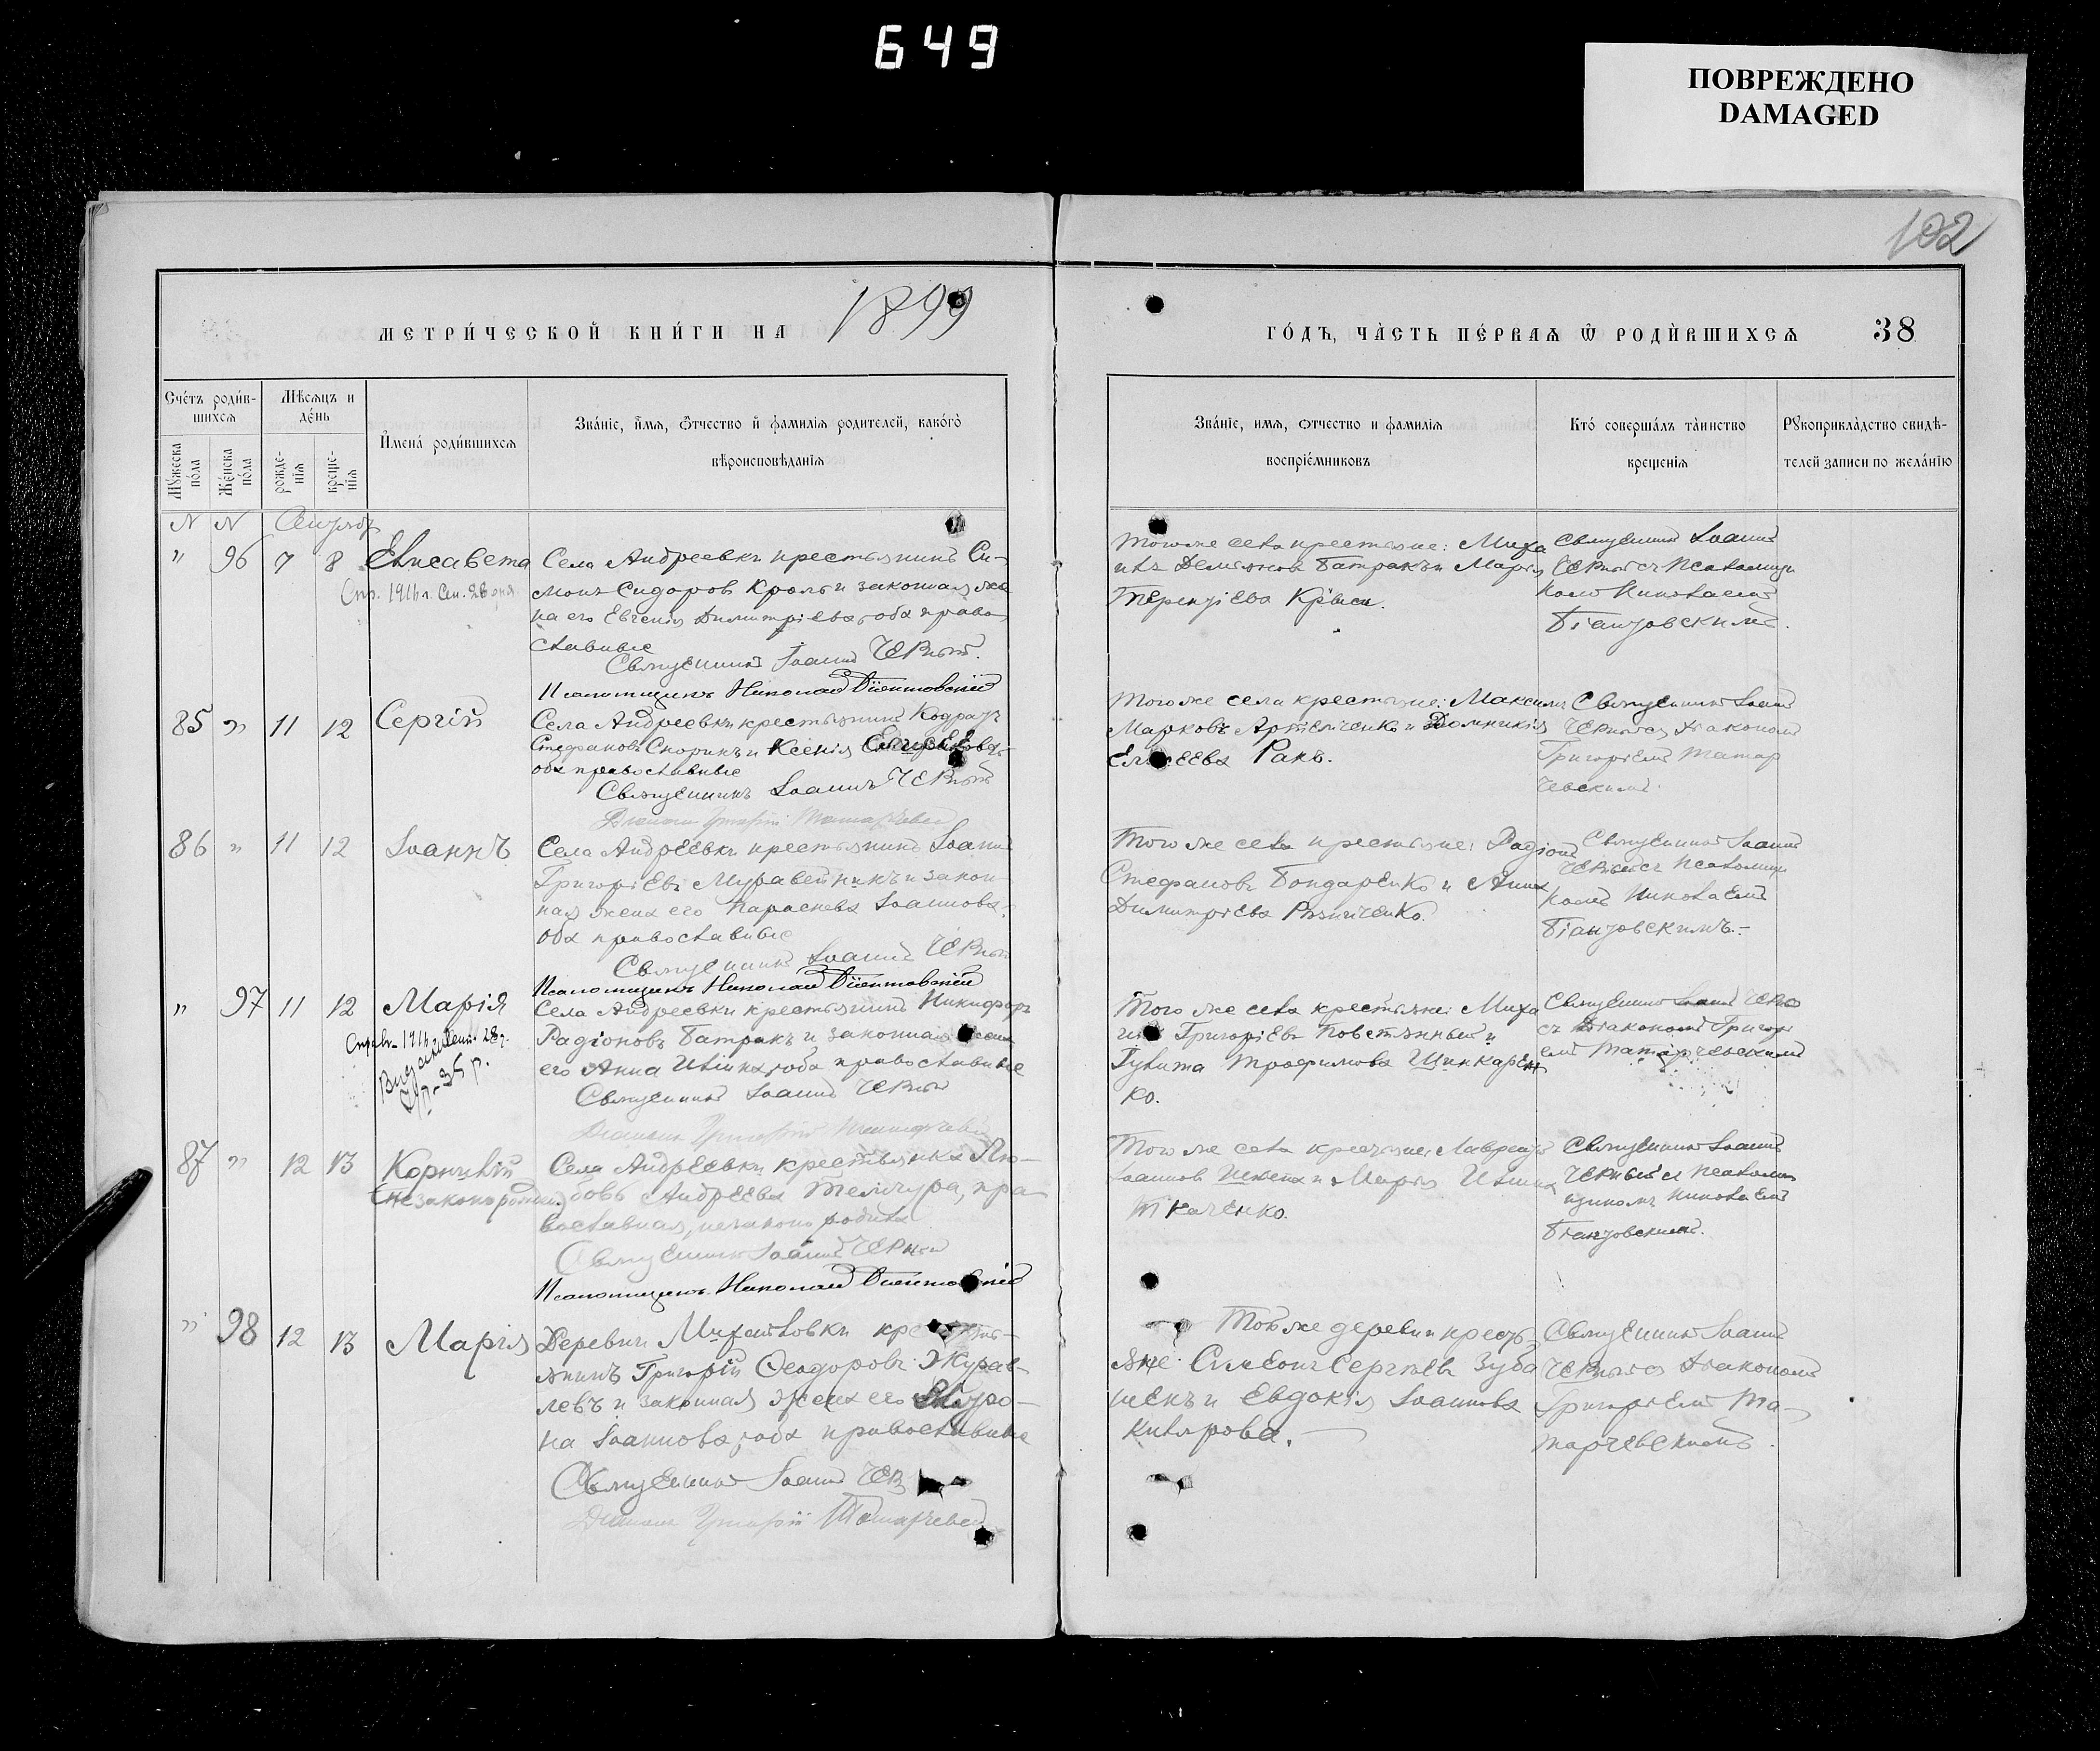 649
ПОВРЕЖДЕНО
DAMAGED
102
МЕТРИ́ЧЕСКОЙ КНИ́ГИ НА 1899
ГО́ДЪ, ЧА̀СТЬ ПЕ́РВАѦ Ѿ РОДЍВШИХСѦ 38
Сче́тъ роди́в-
шихсѧ
Мѣ́сѧцъ и
де́нь
Му́жеска
по́ла
Же́нска
по́ла
рожде-
нїѧ
креще-
нїѧ
И҆мена̀ роди́вшихсѧ
Зва́нїе, и҆́мѧ, ѻ҆́тчество и҆ фами́лїѧ роди́телей, како́гѡ
вѣроисповѣ́данїѧ
Зва́нїе, имѧ, ѻтчество и фамилїѧ
воспрїе́мниковъ
Кто́ соверша́лъ та̀инство
креще́нїѧ
Рꙋкоприкла̀дство свидѣ-
телей записи по жела́нїю
N N Апрѣль
" 96 7 8 Елисавета
Спр. 1916 г. Сен. 26 дня
Села Андреевки крестьянинъ Си-
монъ Сидоровъ Кроль и законная же
на его Евгенія Димитріева, оба право
славные
Священникъ Іоаннъ Черный.
Псаломщикъ Николай
Тогоже села крестьяне: Миха
илъ Демьяновъ Батракъ и Марія
Терентіева Крыса.
Священникъ Іоаннъ
Черный съ Псаломщи
комъ Николаемъ
85 " 11 12 Сергій
Села Андреевки крестьянинъ Кодратъ
Стефановъ Скорикъ и Ксенія
оба православные
Священникъ Іоаннъ Черный
Діаконъ Григорій Татарчевскій
Тогоже села крестьяне: Максимъ
Марковъ Артёмченко и Домникія
Елисеева Ракъ.
Священникъ Іоаннъ
Черный съ Діакономъ
Григоріемъ Татар
чевскимъ.
86 " 11 12 Іоаннъ
Села Андреевки крестьянинъ Іоаннъ
Григоріевъ Муравейникъ и закон-
ная жена его Параскева Іоаннова,
оба православные
Священникъ Іоаннъ Черный
Псаломщикъ Николай
Того же села крестьяне: Радіонъ
Стефановъ Бондаренко и Анна
Димитріева Резниченко.
Священникъ Іоаннъ
Черный съ Псаломщи
комъ Николаемъ
" 97 11 12 Марія
Справ. 1916 г. Сент. 28 д.
Села Андреевки крестьянинъ Никифоръ
Радіоновъ Батракъ и законная жена
его Анна Ильина, оба православные
Священникъ Іоаннъ Черный
Діаконъ Григорій Татарчевскій
Того же села крестьяне: Миха
илъ Григоріевъ Повстянный и
Гулита Трофимова Шинкарен
ко.
Священникъ Іоаннъ Черный
съ Діакономъ Григорі
емъ Татарчевскимъ
87 " 12 13 Корнилій
(незаконорожд.)
Села Андреевки крестьянка Лю-
бовь Андреева Телишура, пра
вославная, незаконо родила
Священникъ Іоаннъ Черный
Псаломщикъ Николай
Того же села крестьяне: Лаврентій
Іоанновъ и Марія Ильина
Ткаченко.
Священникъ Іоаннъ
Черный съ Псалом
щикомъ Николаемъ
" 98 12 13 Марія
Деревни Михайловки крестья-
янинъ Григорій Ѳеодоровъ Журав-
левъ и законная жена его
на Іоаннова, оба православные
Священникъ Іоаннъ
Діаконъ Григорій Татарчевскій
Той же деревни кресть-
яне: Симеонъ Сергѣевъ Зуба
щенъ и Евдокія Іоаннова
Килярова.
Священникъ Іоаннъ
Черный съ Діакономъ
Григоріемъ Та-
тарчевскимъ.